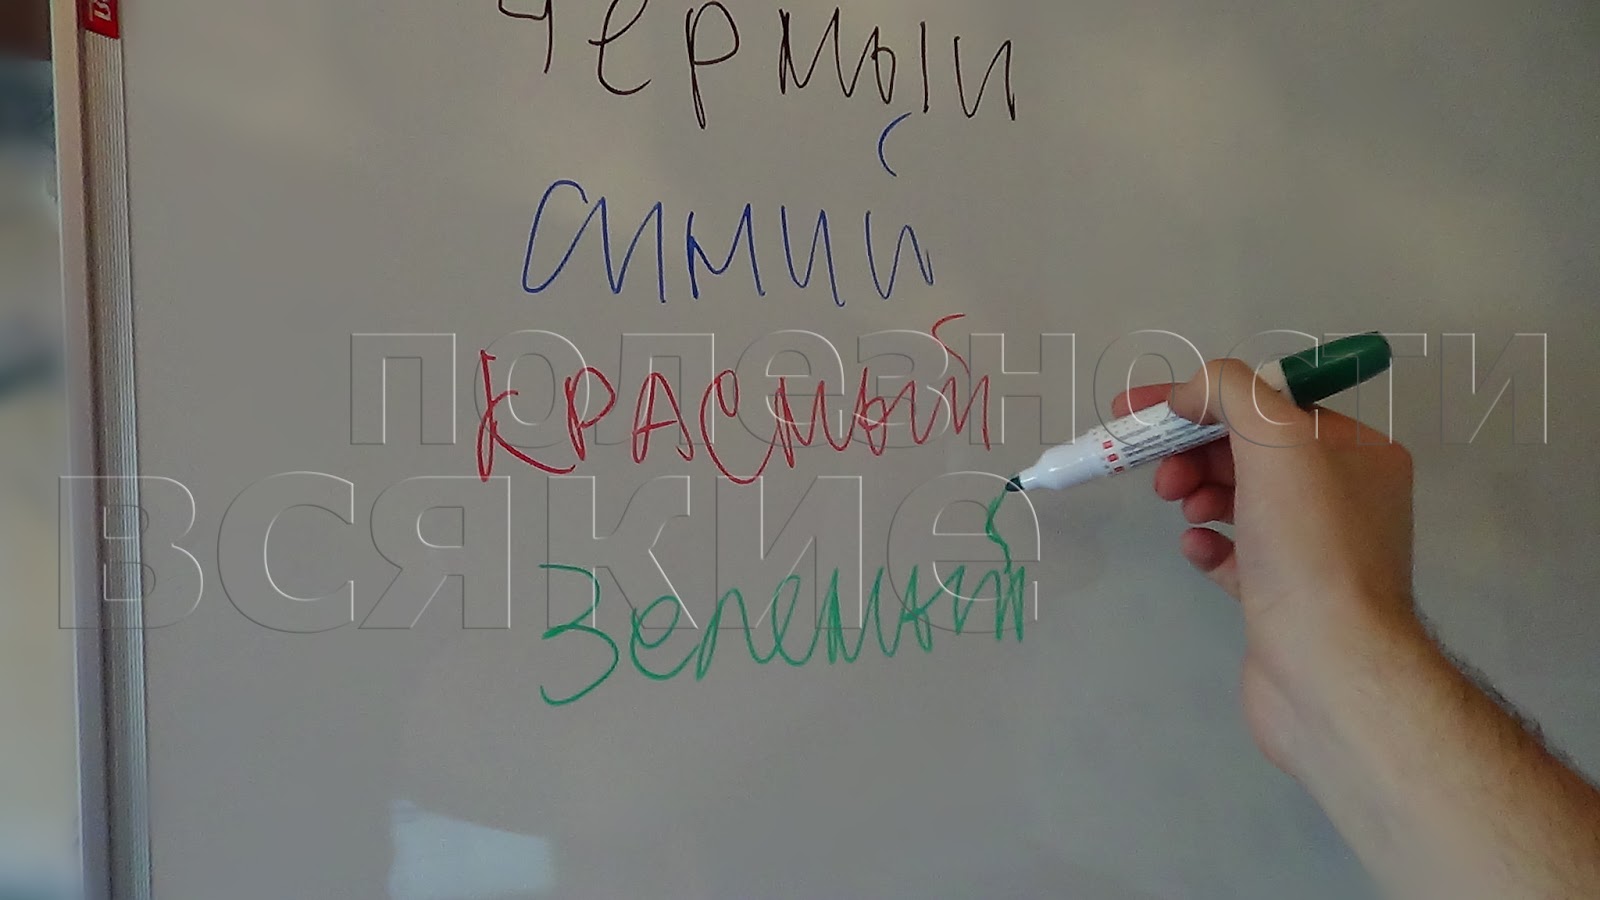 Черный
синий
красный
полезности
всякие
зеленый